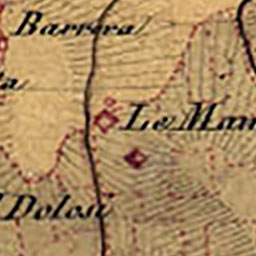 Barrera
ta
Le Mau
Dolosi